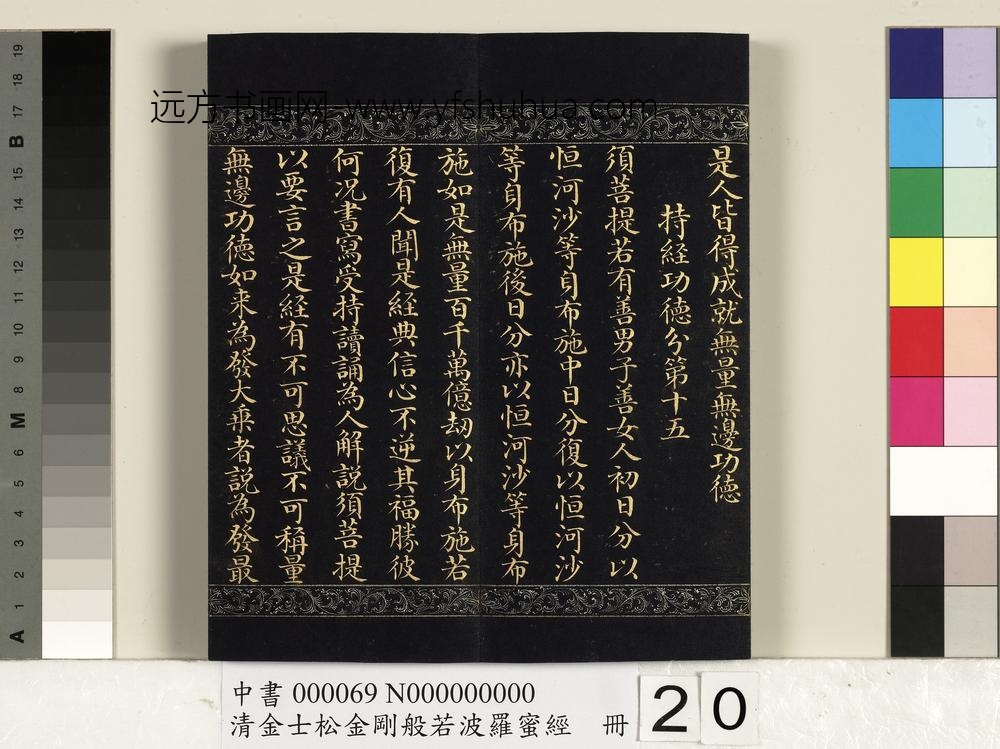 远方书画网 www.yfshuhua.com
是人皆得成就無量無邊功德
持経功德分第十五
須菩提若有善男子善女人初日分以
恒河沙等身布施中日分復以恒河沙
等身布施後日分亦以恒河沙等身布
施如是無量百千萬億劫以身布施若
復有人聞是経典信心不逆其福勝彼
何況書寫受持讀誦為人解説須菩提
以要言之是経有不可思議不可稱量
無邊功德如来為發大乗者説為發最
中書 000069 N000000000
清金士松金剛般若波羅蜜經 冊
20
19
18
17
B
15
14
13
12
11
10
9
8
M
6
5
4
3
2
1
A